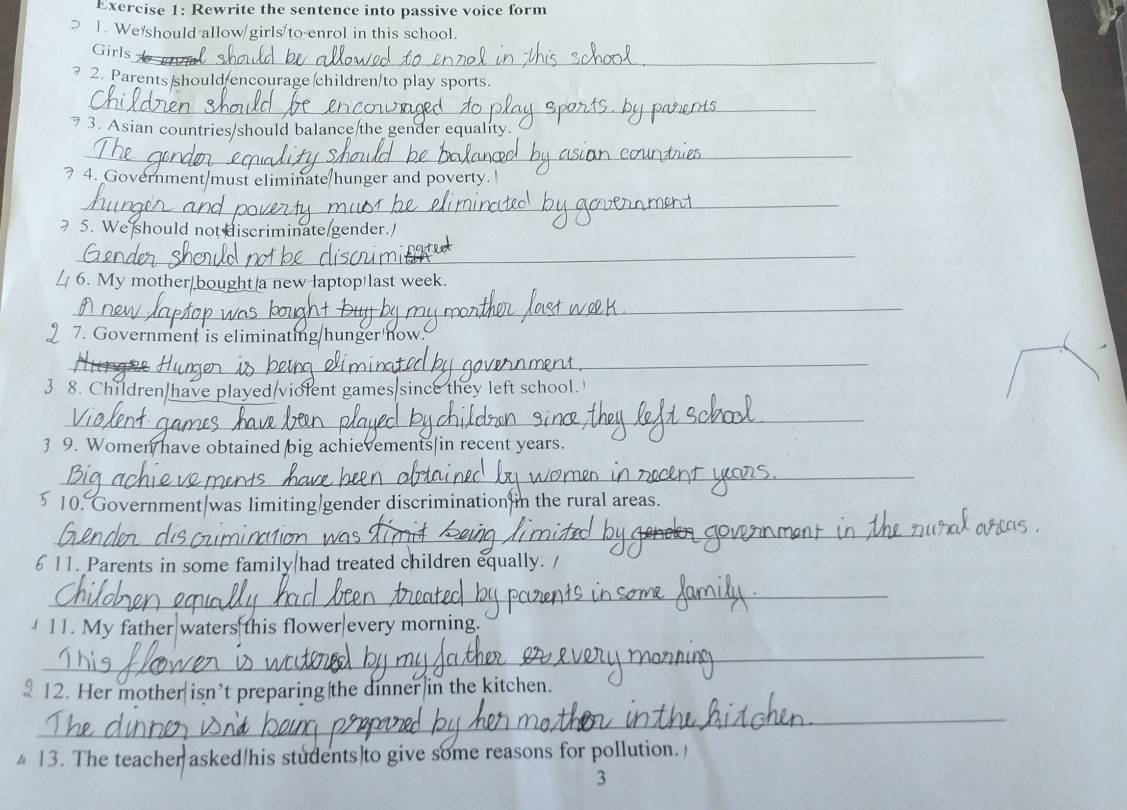 Exercise 1: Rewrite the sentence into passive voice form
? 1. We should allow/girls/to enrol in this school.
Girls should be allowed to enrol in this school.
? 2. Parents/should/encourage/children/to play sports.
Children should be encouraged to play sports. by parents
? 3. Asian countries/should balance/the gender equality.
The gender equality should be balanced by asian countries
? 4. Government/must eliminate/hunger and poverty.
hunger and poverty must be eliminated by government
? 5. We/should not discriminate/gender./
Gender should not be discriminated
4 6. My mother/bought/a new laptop/last week.
A new laptop was bought by my monther last week.
2 7. Government is eliminating/hunger now.
Hunger is being eliminated by government.
3 8. Children/have played/violent games/since they left school.
Violent games have been played by children since, they left school.
3 9. Women/have obtained/big achievements/in recent years.
Big achievements have been obtained by women in recent years.
5 10. Government/was limiting/gender discrimination/in the rural areas.
Gender discrimination was being limited by government in the rural areas.
6 11. Parents in some family/had treated children equally. /
Children equally had been treated by parents in some family.
1 11. My father/waters/this flower/every morning.
This flower is watered by my father every morning
2 12. Her mother/isn't preparing/the dinner/in the kitchen.
The dinner isn't being prepared by her mother in the kitchen.
4 13. The teacher/asked/his students/to give some reasons for pollution. /
3